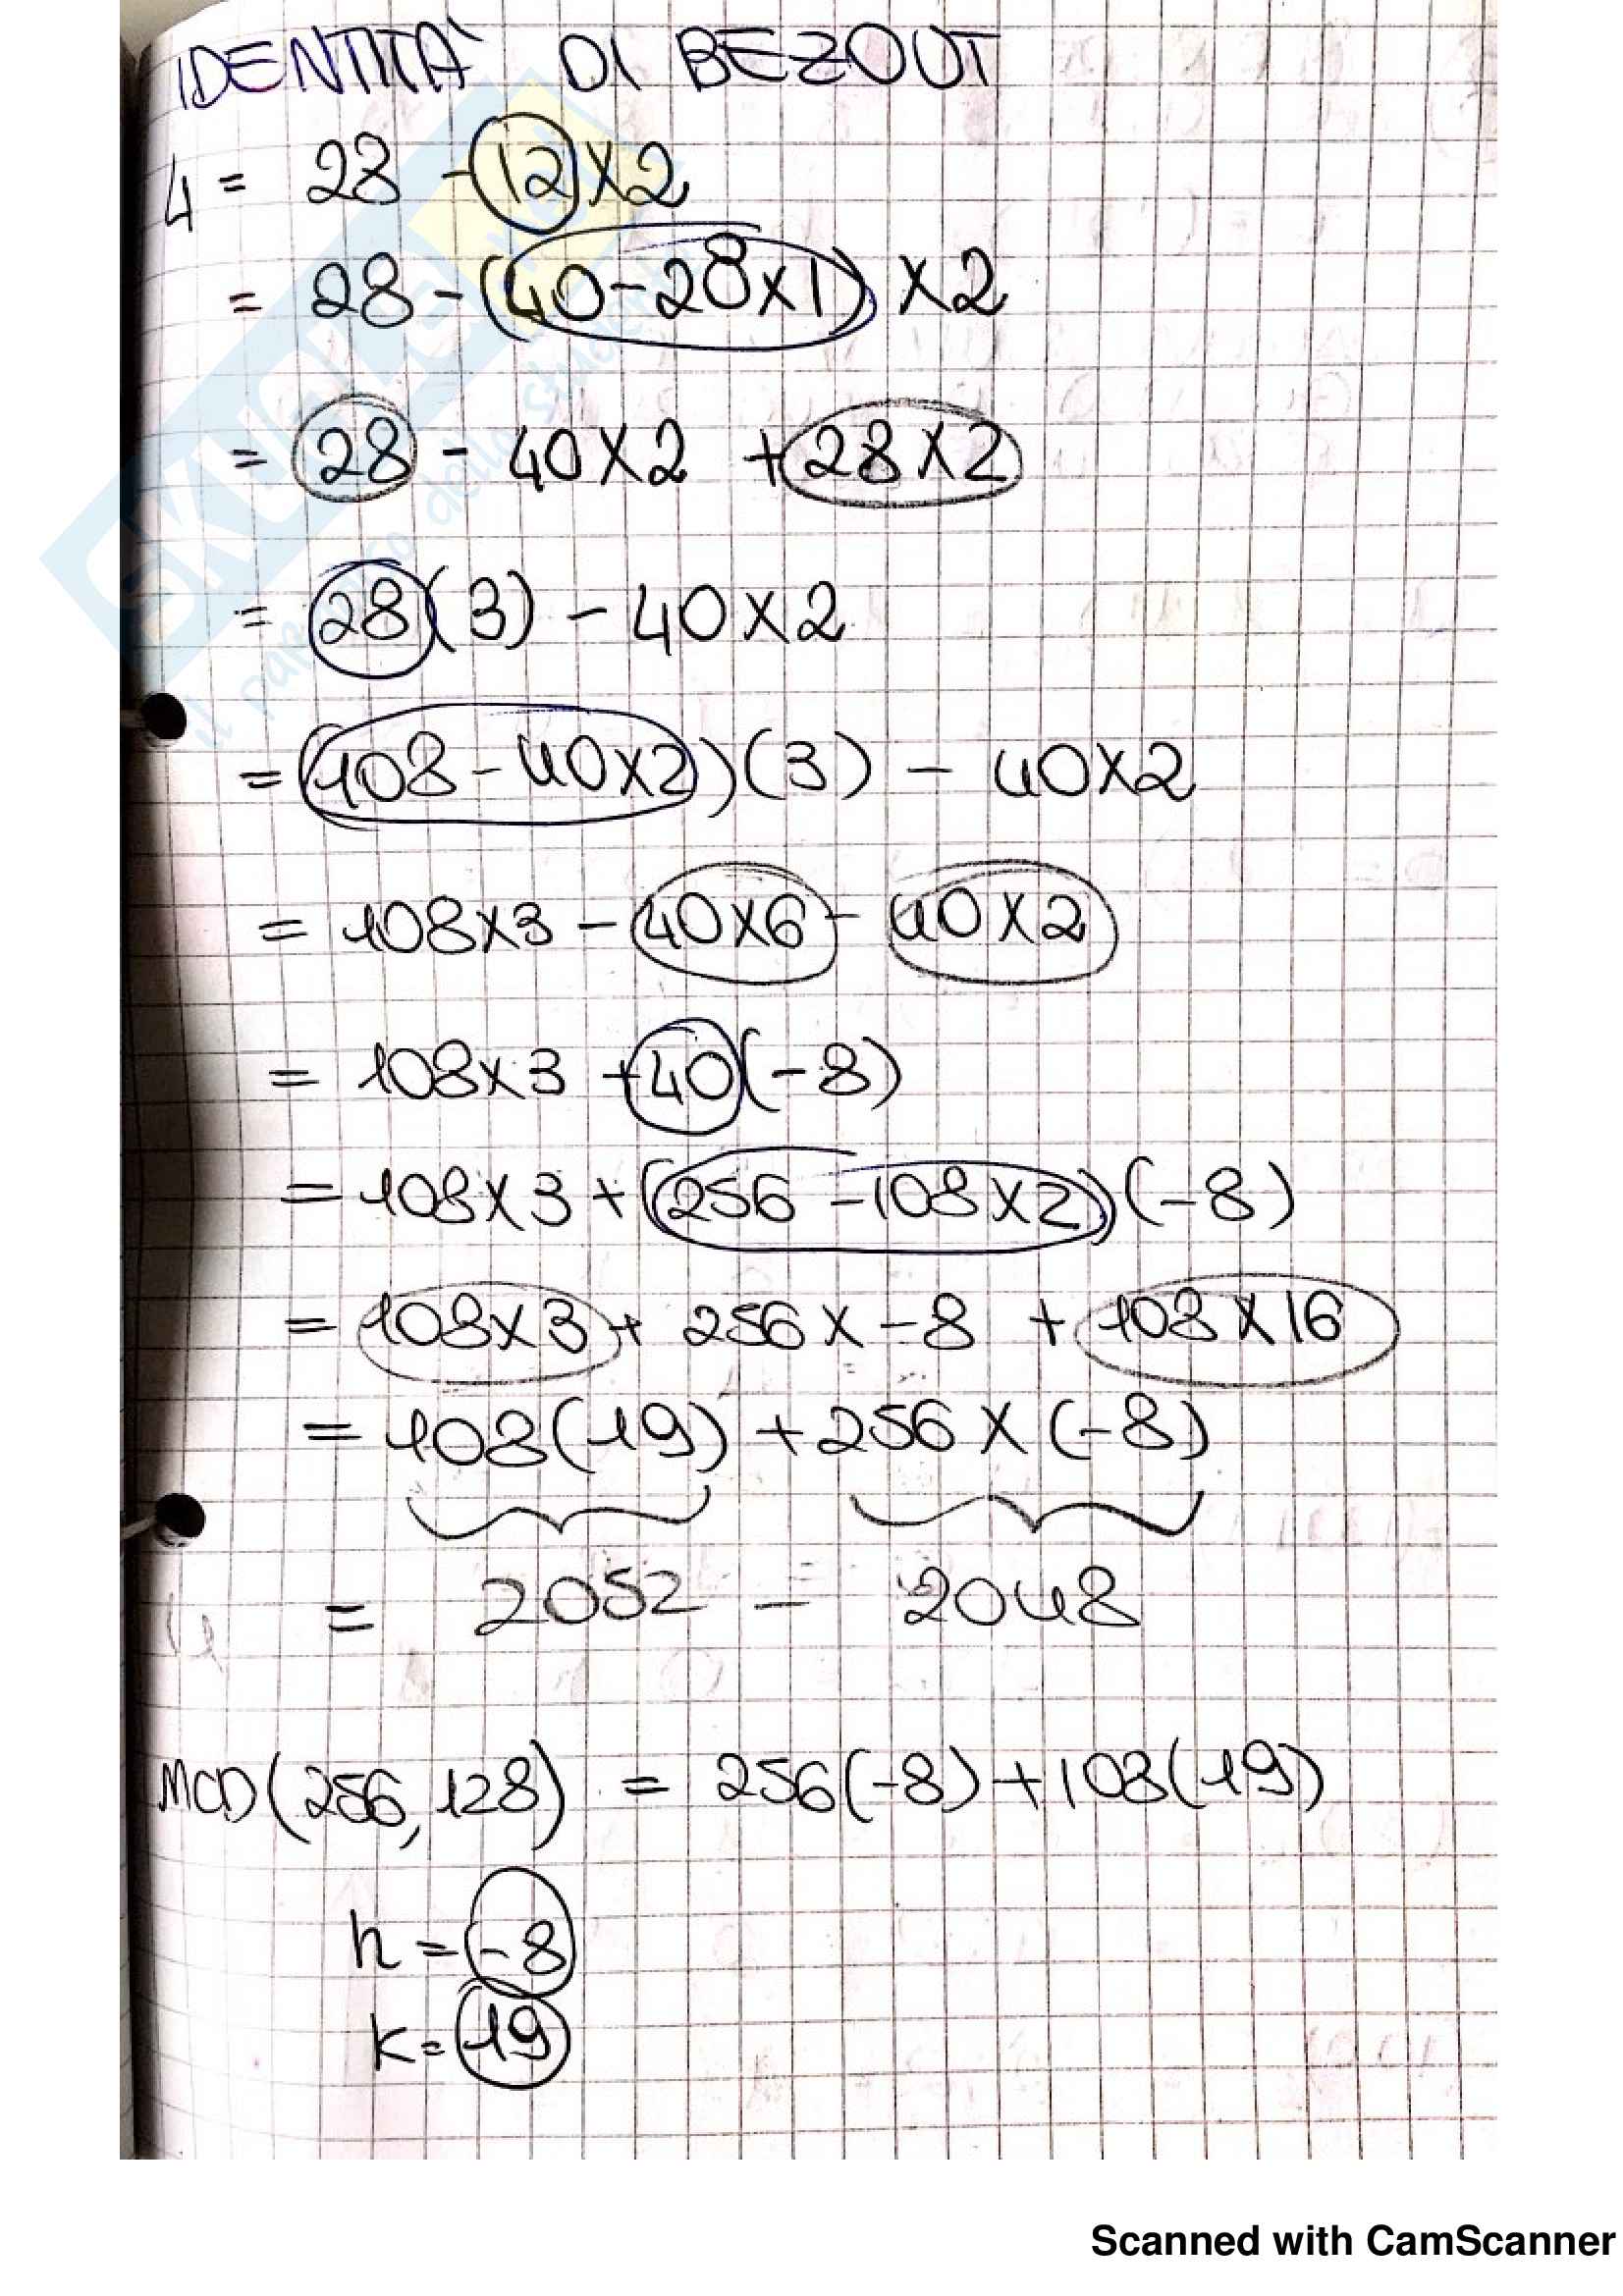 IDENTITA' DI BEZOUT
4 = 28 - 12 x 2
= 28 - (40 - 28 x 1) x 2
= 28 - 40 x 2 + 28 x 2
= 28 (3) - 40 x 2
= (108 - 40 x 2) (3) - 40 x 2
= 108 x 3 - 40 x 6 - 40 x 2
= 108 x 3 + 40 (-8)
= 108 x 3 + (256 - 108 x 2) (-8)
= 108 x 3 + 256 x -8 + 108 x 16
= 108 (19) + 256 x (-8)
= 2052 - 2048
MCD (256, 128) = 256 (-8) + 108 (19)
h = -8
k = 19
Scanned with CamScanner